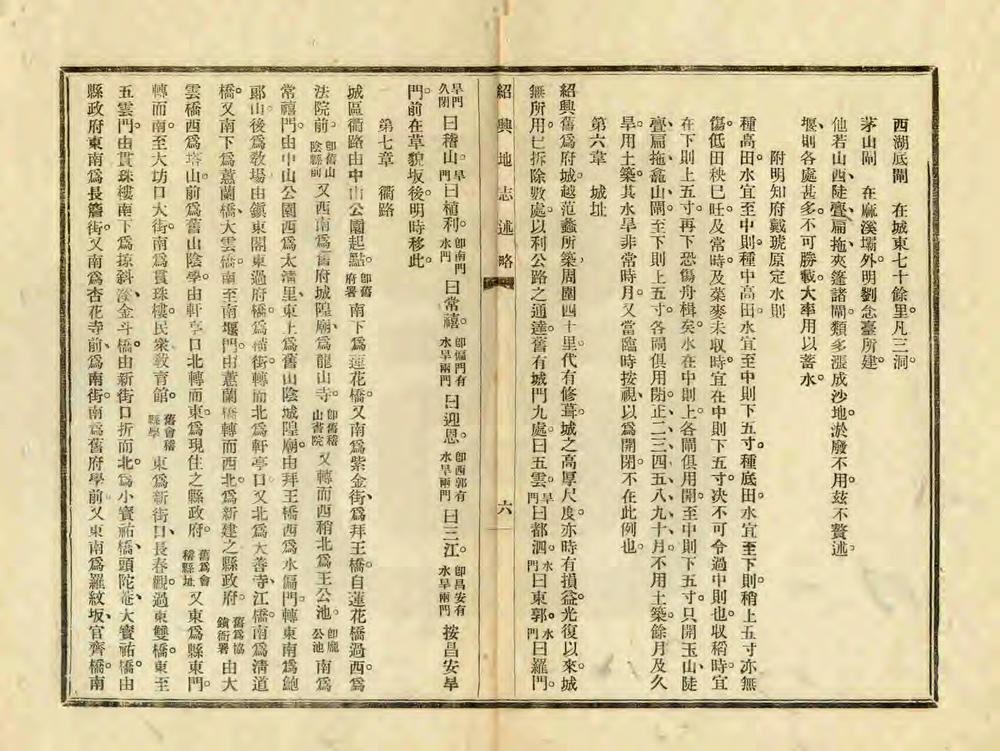 西湖底閘　在城東七十餘里凡三洞。
茅山閘　在麻溪壩外明劉念臺所建
他若山西陡亹、扁拖、夾篷諸閘類多漲成沙地淤廢不用。玆不贅述。
堰則各處甚多。不可勝載。大率用以蓄水。
附明知府戴琥原定水則
種高田。水宜至中則。種中高田。水宜至中則下五寸。種底田。水宜至下則。稍上五寸亦無
傷。低田秧已旺。及常時。及菜麥未收時。宜在中則下五寸。決不可令過中則也。收稻時。宜
在下則上五寸。再下恐傷舟楫矣。水在中則上。各閘俱用開。至中則下五寸。只開玉山、陡
亹、扁拖、龕山閘。至下則上五寸。各閘俱用閉。正二三四五八九十月。不用土築。餘月及久
旱用土築。其水旱非常時月。又當臨時按視、以爲開閉。不在此例也。
第六章　城址
紹興舊爲府城。越范蠡所築。周圍四十里。代有修葺。城之高厚尺度。亦時有損益。光復以來。城
無所用。已拆除數處。以利公路之通達。舊有城門九處。曰五雲。旱門曰都泗。水門曰東郭。水門曰羅門。
紹興地志述略　六
旱門久閉曰稽山。旱門曰植利。卽南門水門曰常禧。卽偏門有水旱兩門曰迎恩。卽西郭有水旱兩門曰三江。卽昌安有水旱兩門按昌安旱
門。前在草貌坂。後明時移此。
第七章　衢路
城區衢路。由中山公園起點。卽舊府署南下爲蓮花橋。又南爲紫金街、爲拜王橋。自蓮花橋過西。爲
法院前。卽舊山陰縣前又西南爲舊府城隍廟、爲龍山寺。卽舊稽山書院又轉而西稍北爲王公池。卽龐公池南爲
常禧門。由中山公園西爲太淸里。東上爲舊山陰城隍廟。由拜王橋西爲水偏門。轉東南爲鮑
郞山。後爲敎場。由鎭東閣東過府橋。爲橫街。轉而北爲軒亭口。又北爲大善寺、江橋。南爲淸道
橋。又南下爲蕙蘭橋、大雲橋。南至南堰門。由蕙蘭橋轉而西北。爲新建之縣政府。舊爲協鎭衙署由大
雲橋西爲塔山。前爲舊山陰學。由軒亭口北轉而東。爲現住之縣政府。舊爲會稽縣址又東爲縣東門。
轉而南。至大坊口大街。南爲貫珠樓。民衆敎育館。舊會稽縣學東爲新街口、長春觀。過東雙橋。東至
五雲門。由貫珠樓南下爲掠斜溪、金斗橋。由新街口折而北。爲小寶祐橋、頭陀菴、大寶祐橋。由
縣政府東南爲長簷街。又南爲杏花寺前、爲南街。南爲舊府學前。又東南爲羅紋坂、官齊橋。南